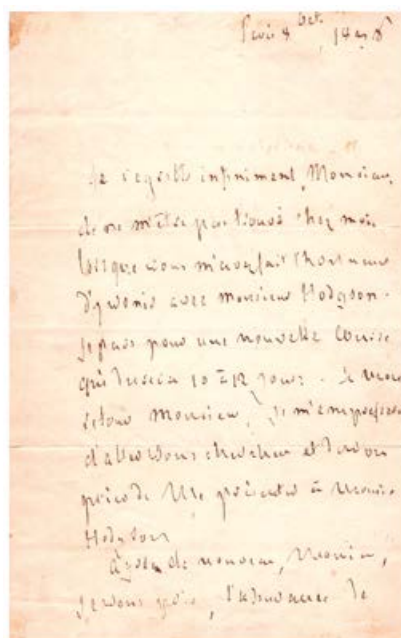 Paris 8 Oct.
Je regrette infiniment, Monsieur,
de ne m'être pas trouvé chez moi
lorsque vous m'avez fait l'honneur
d'y venir avec Monsieur Hodgson.
Je pars pour une nouvelle course
qui durera 10 à 12 jours. À mon
retour Monsieur, je m'empresserai
d'aller vous chercher et de vous
prier de me présenter à Monsieur
Hodgson
de nouveau, Monsieur,
je vous prie, l'assurance de